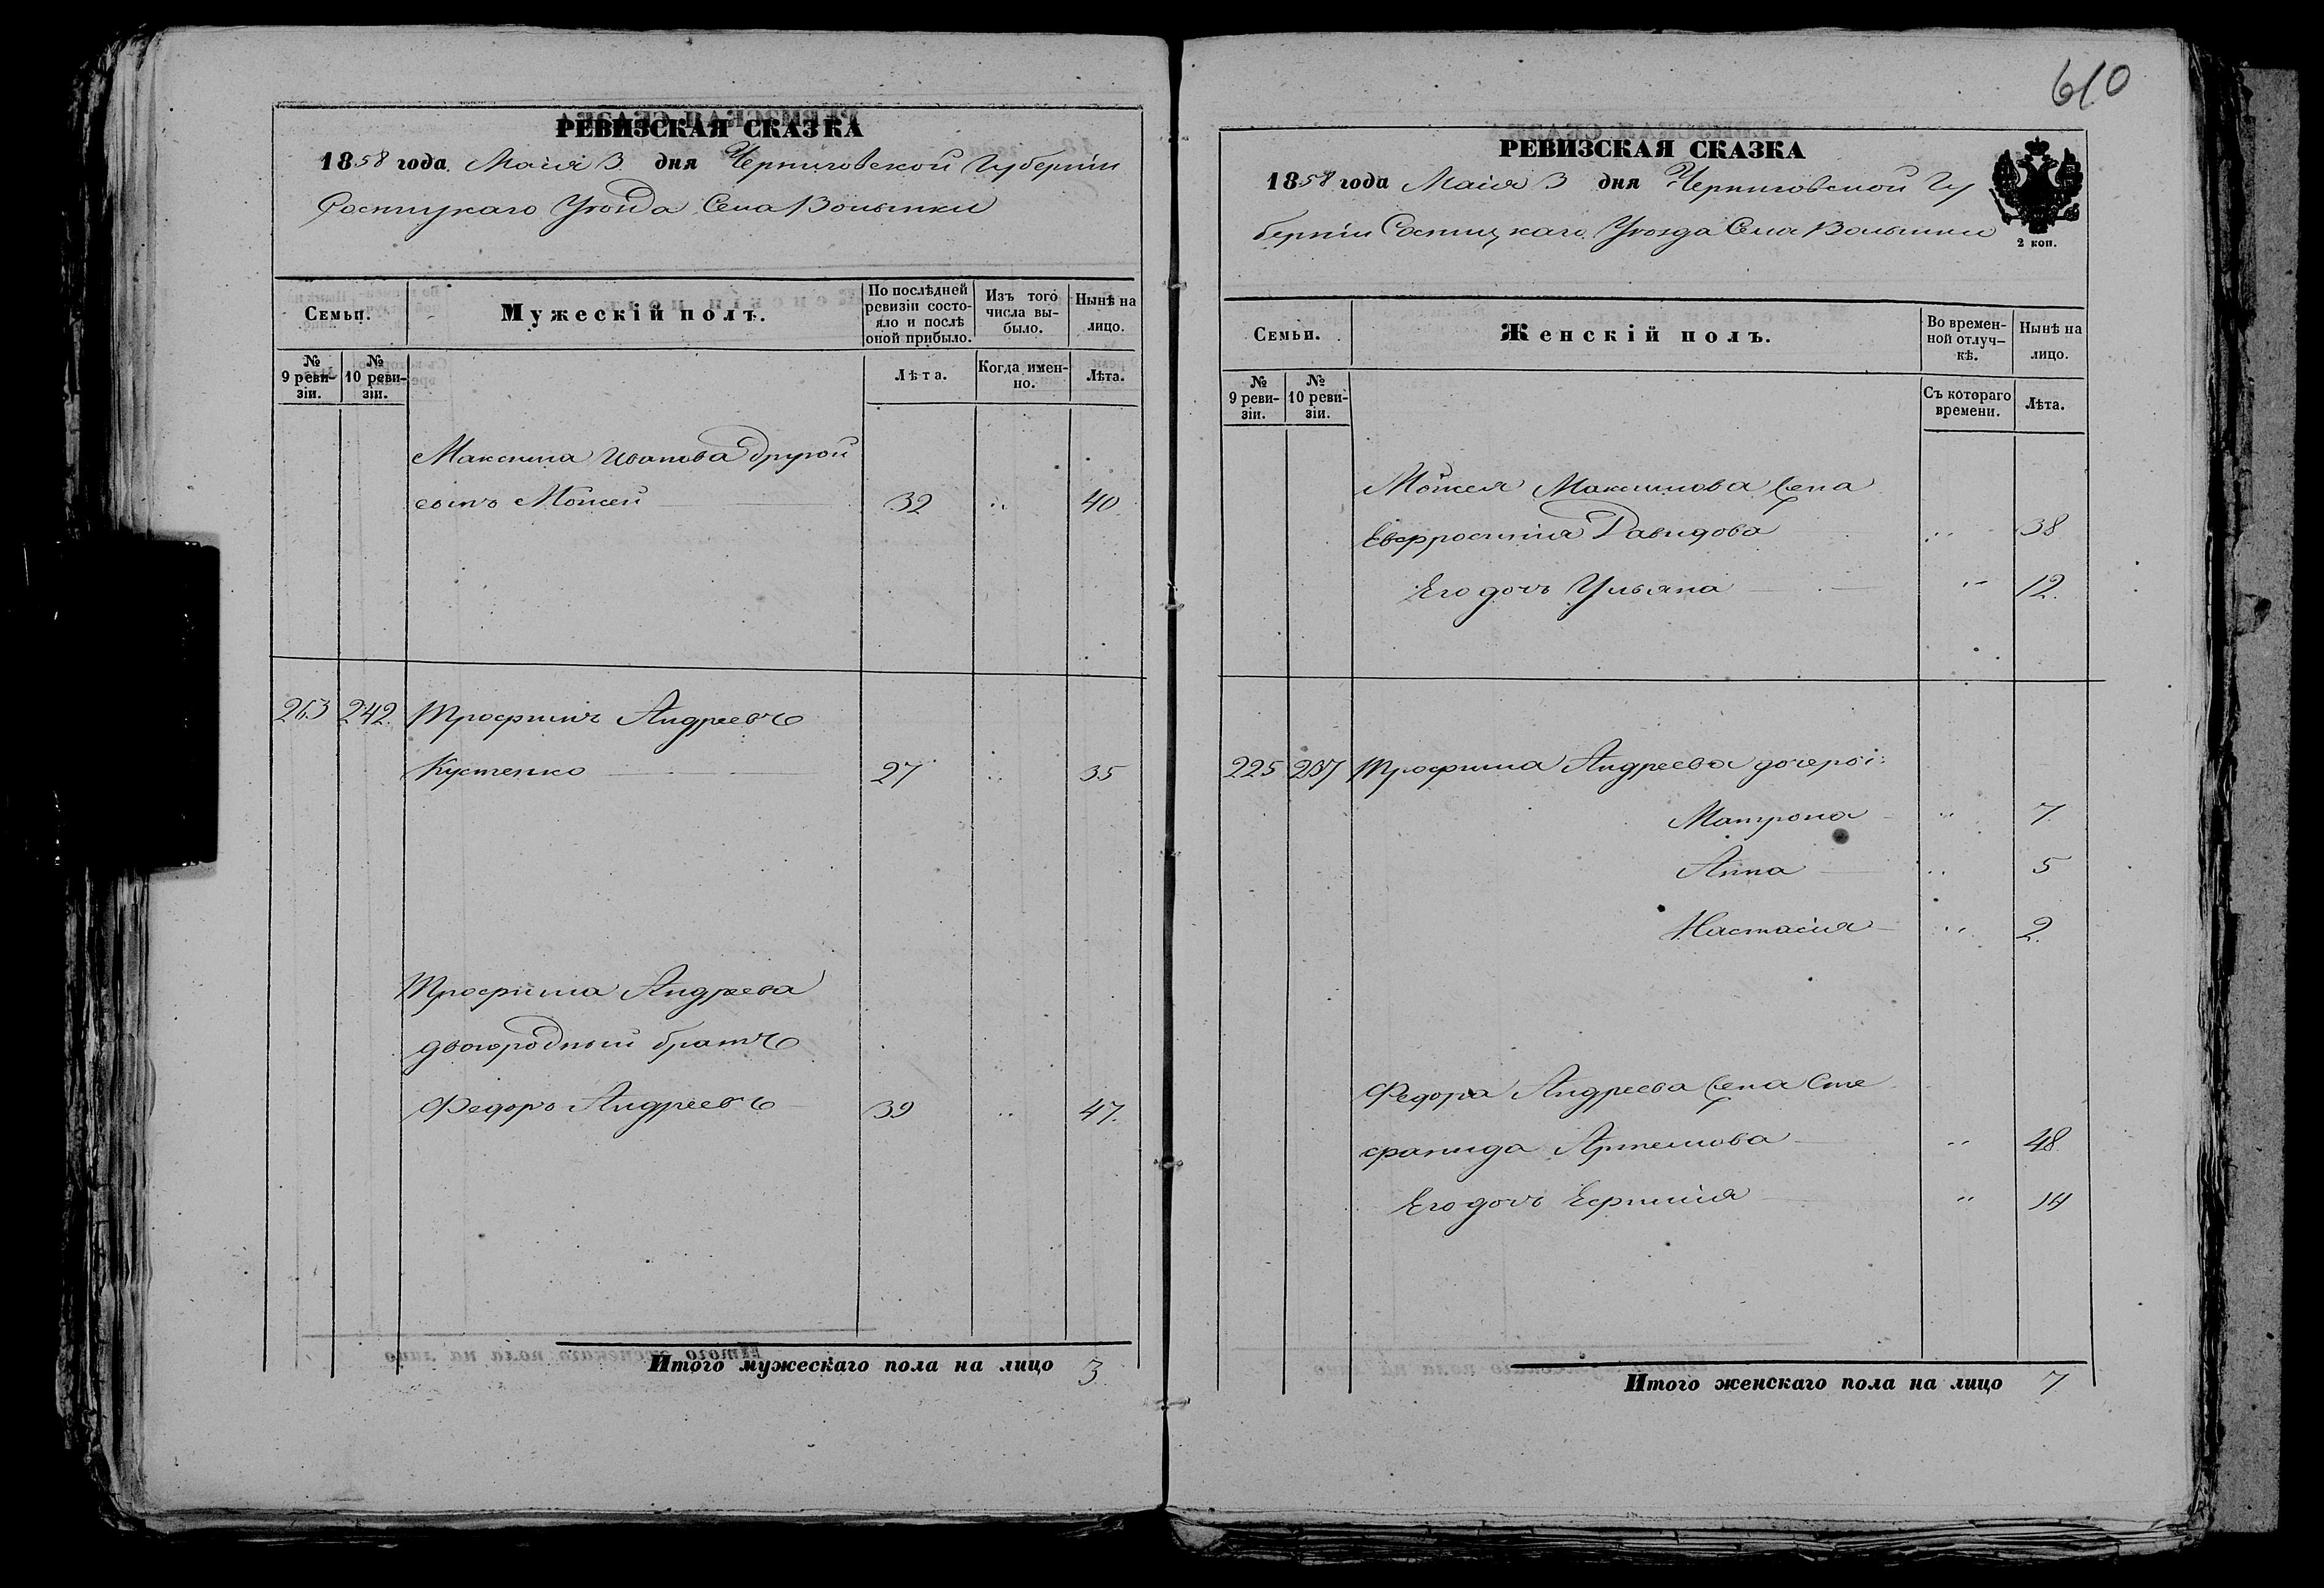 РЕВИЗСКАЯ СКАЗКА
1858 года Маія 3 дня Черниговской Губерніи
Сосницкаго Уезда Села Волынки
Семьи.
Мужескій полъ.
По послѣдней ревизіи состо-
яло и послѣ оной прибыло.
Изъ того числа вы-
было.
Нынѣ на лицо.
№ 9 реви-
зіи.
№ 10 реви-
зіи.
Лѣта.
Когда имен-
но.
Лѣта.
Максима Иванова другой
сынъ Моисей 32 " 40
263 242 Трофимъ Андреевъ
Кустенко 27 " 35
Трофима Андреева
двоюродный братъ
Федоръ Андреевъ 39 " 47.
Итого мужескаго пола на лицо 3
610
РЕВИЗСКАЯ СКАЗКА
1858 года Маія 3 дня Черниговской Гу
берніи Сосницкаго Уезда Села Волынки
2 коп.
Семьи.
Женскій полъ.
Во времен-
ной отлуч-
кѣ.
Нынѣ на лицо.
№ 9 реви-
зіи.
№ 10 реви-
зіи.
Съ котораго времени.
Лѣта.
Моисея Максимова жена
Евфросинія Давидова " 38
Его дочь Ульяна " 12.
225 237 Трофима Андреева дочери:
Матрона " 7
Анна " 5
Настасія " 2.
Федора Андреева жена Сте
фанида Артемова " 48
Его дочь Ефимія " 14
Итого женскаго пола на лицо 7